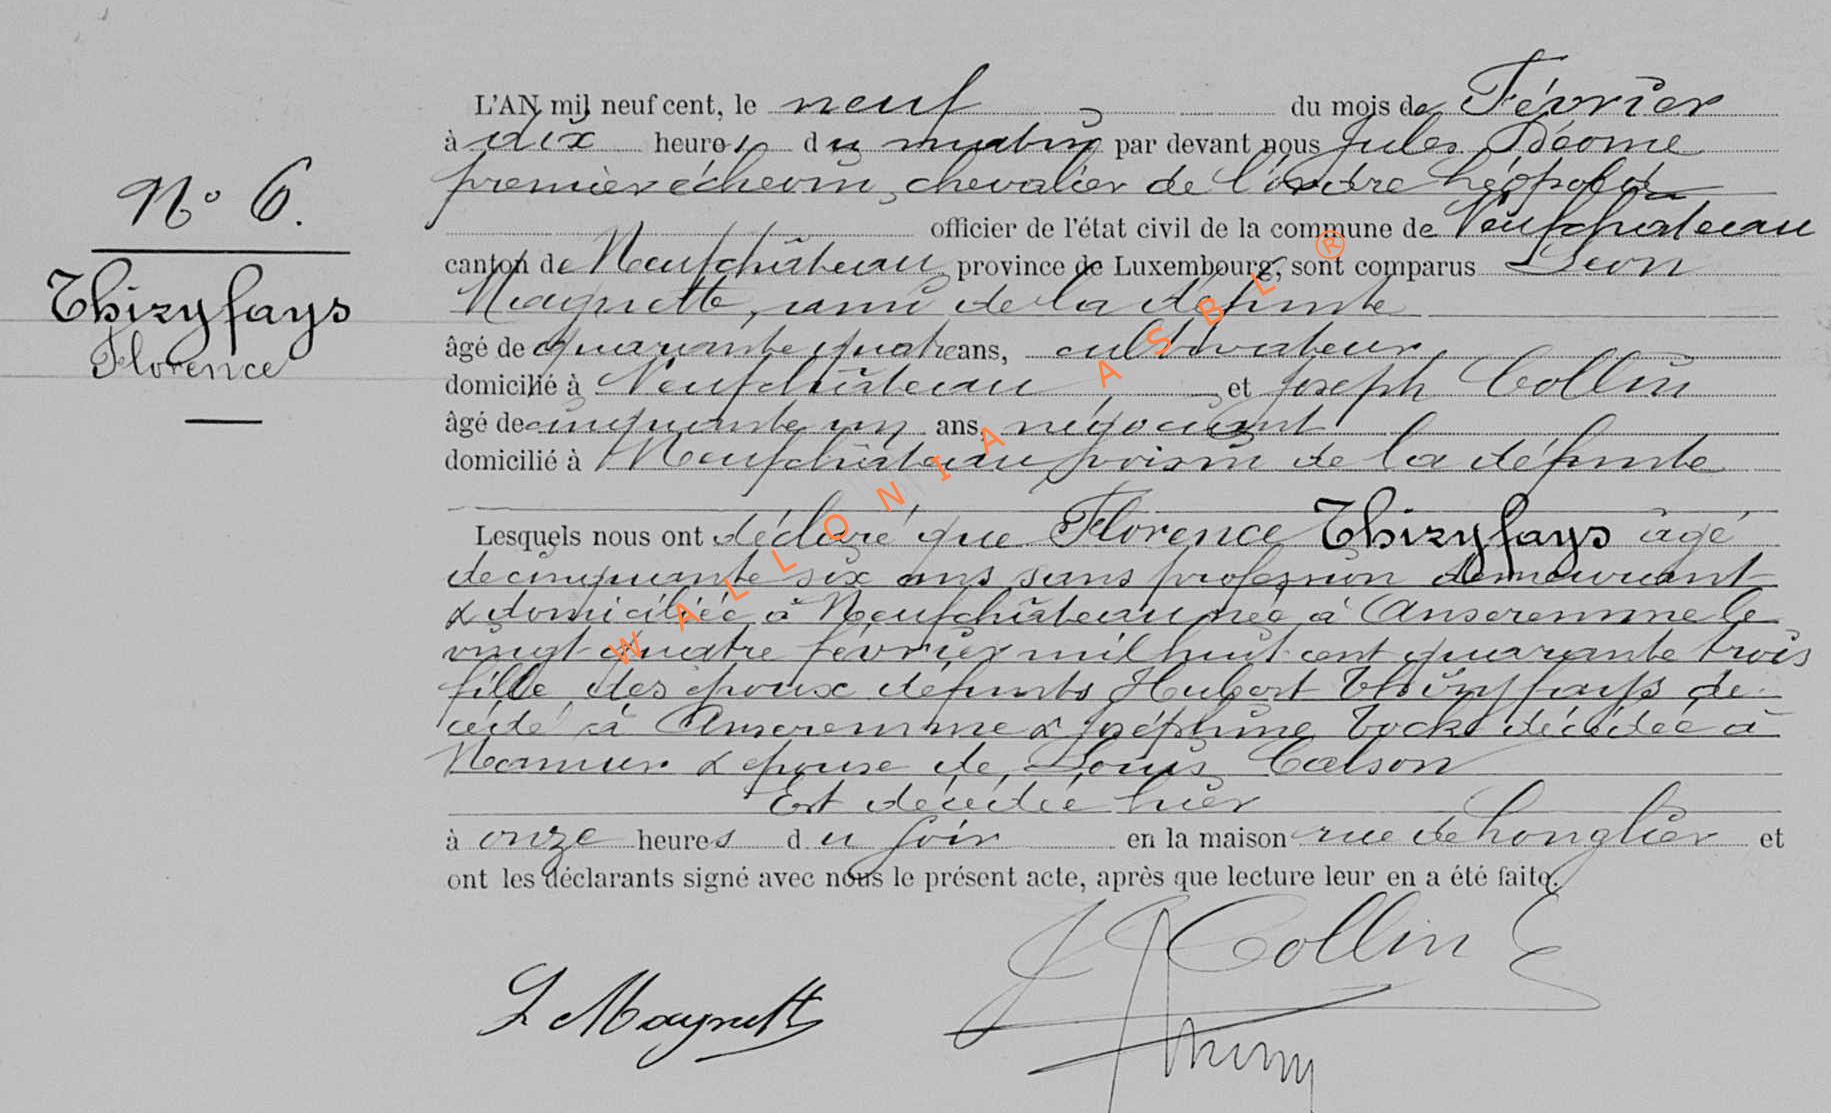 N° 6.
Thiryfays
Florence
L'AN mil neuf cent, le neuf du mois de Février
à dix heures du matin par devant nous Jules Déome
premier échevin, chevalier de l'ordre Léopold
officier de l'état civil de la commune de Neufchateau
canton de Neufchâteau, province de Luxembourg, sont comparus Léon
Maquette, ami de la défunte
âgé de quarante quatre ans, cultivateur
domicilié à Neufchâteau et Joseph Collin
âgé de cinquante un ans, négociant
domicilié à Neufchâteau voisin de la défunte
Lesquels nous ont déclaré que Florence Thiryfays âgé
de cinquante six ans sans profession demeurant
& domiciliée à Neufchâteau née à Anseremme le
vingt-quatre février mil huit cent quarante trois
fille des époux défunts Hubert Thiryfays dé-
cédé à Anseremme & Joséphine Bock décédée à
Namur & épouse de Louis
Est décédée hier
à onze heures du soir en la maison rue de Longlier et
ont les déclarants signé avec nous le présent acte, après que lecture leur en a été faite.
J Collin
L Maquette
WALLONIA ASBL ®